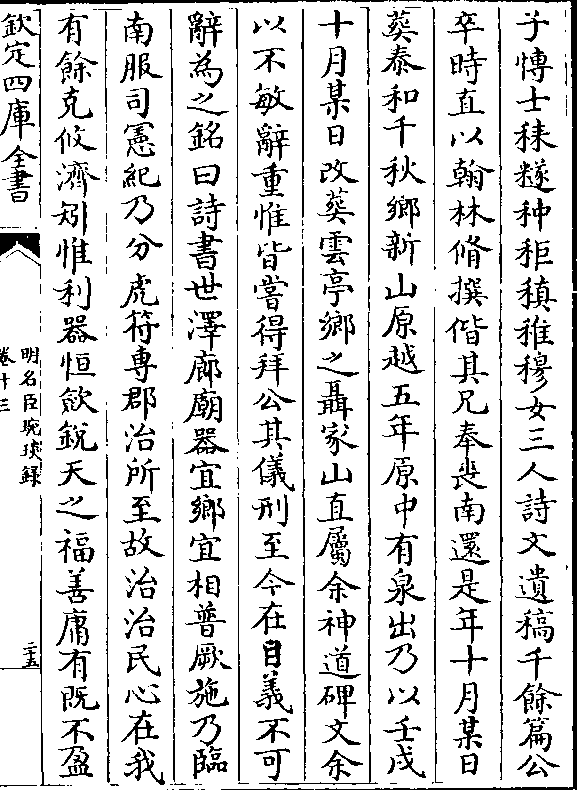 子博士秣䅵种秬稹稚穆女三人詩文遺稿千餘篇公
卒時直以翰林脩撰偕其兄奉喪南還是年十月某日
葵泰和千秋鄉新山原越五年原中有泉出乃以壬戌
十月某日改葵雲亭鄉之聶家山直屬余神道碑文余
以不敏辭重惟皆嘗得拜公其儀刑至今在目義不可
辭為之銘曰詩書世澤廊廟器宜鄉宜相普厥施乃臨
南服司憲紀乃分虎符專郡治所至故治治民心在我
有餘克攸濟矧惟利器恒歛銳天之福善庸有既不盈
欽定四庫全書
明名臣琬琰録
卷十三
二五